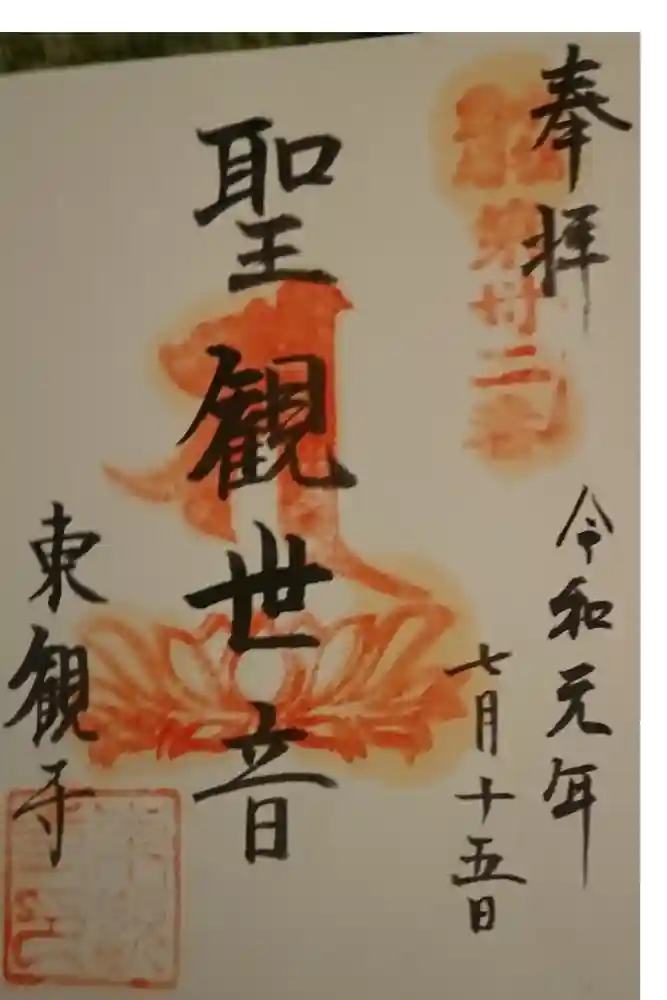 奉拝
第卅二番
令和元年
七月十五日
聖観世音
東観寺